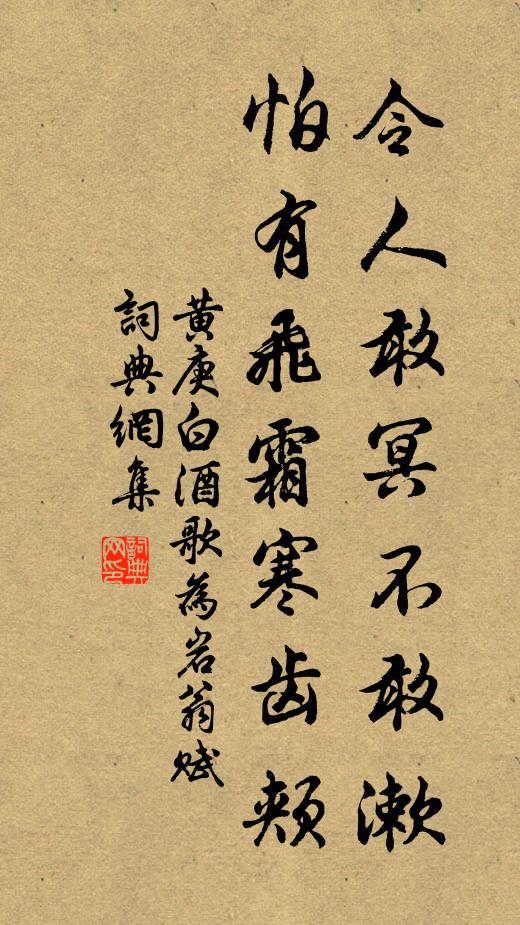 令人敢冥不敢漱
怕有飛霜寒齿頰
黄庚白酒歌為岩翁赋
詞典網集
詞典
网印